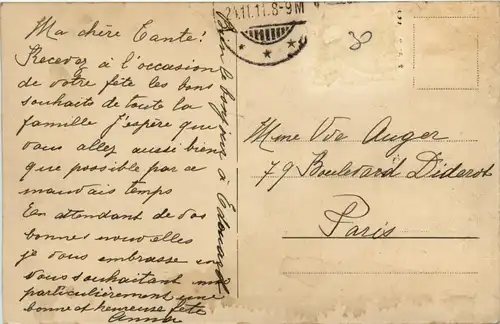 Ma chère Tante!
Recevez à l'occasion
de votre fête les bons
souhaits de toute la
famille J'espère que
vous allez aussi bien
que possible par ce
mauvais temps
En attendant de vos
bonnes nouvelles
je vous embrasse en
vous souhaitant
particulièrement une
bonne et heureuse fête
Anna
bonjour à Edouard
24.11.11. 8-9 M
30
Mme Vve Auger
79 Boulevard Diderot
Paris